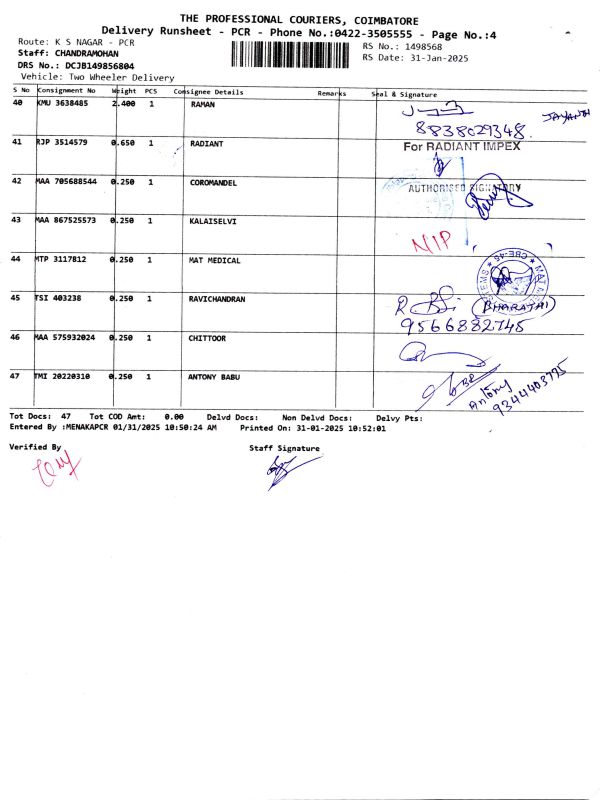 THE PROFESSIONAL COURIERS, COIMBATORE
Delivery Runsheet - PCR - Phone No.:0422-3505555 - Page No.:4
Route: K S NAGAR - PCR
RS No.: 1498568
Staff: CHANDRAMOHAN
RS Date: 31-Jan-2025
DRS No.: DCJB149856804
Vehicle: Two Wheeler Delivery
S No Consignment No Weight PCS Consignee Details Remarks Seal & Signature
40 KMU 3638485 2.400 1 RAMAN
JAYANTHI
8838029348.
41 RJP 3514579 0.650 1 RADIANT For RADIANT IMPEX
42 MAA 705688544 0.250 1 COROMANDEL AUTHORISED SIGNATORY
43 MAA 867525573 0.250 1 KALAISELVI
N/P
44 MTP 3117812 0.250 1 MAT MEDICAL
CBE-45
45 TSI 403238 0.250 1 RAVICHANDRAN
(BHARATHI)
9566882745
46 MAA 575932024 0.250 1 CHITTOOR
47 TMI 20220310 0.250 1 ANTONY BABU
Antony
9344403775
Tot Docs: 47 Tot COD Amt: 0.00 Delvd Docs: Non Delvd Docs: Delvy Pts:
Entered By :MENAKAPCR 01/31/2025 10:50:24 AM Printed On: 31-01-2025 10:52:01
Verified By Staff Signature